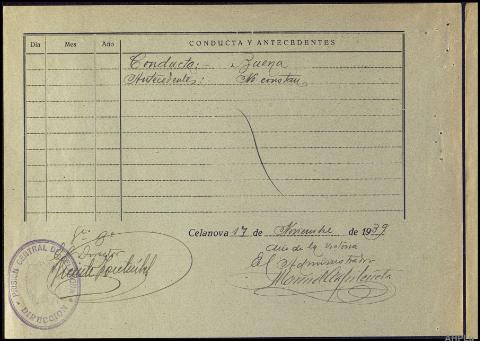 Día Mes Año CONDUCTA Y ANTECEDENTES
Conducta:- Buena
Antecedentes: No constan
Celanova 17 de Noviembre de 1939
Año de la Victoria
El Director
El Administrador
PRISIÓN CENTRAL DE CELANOVA
DIRECCIÓN